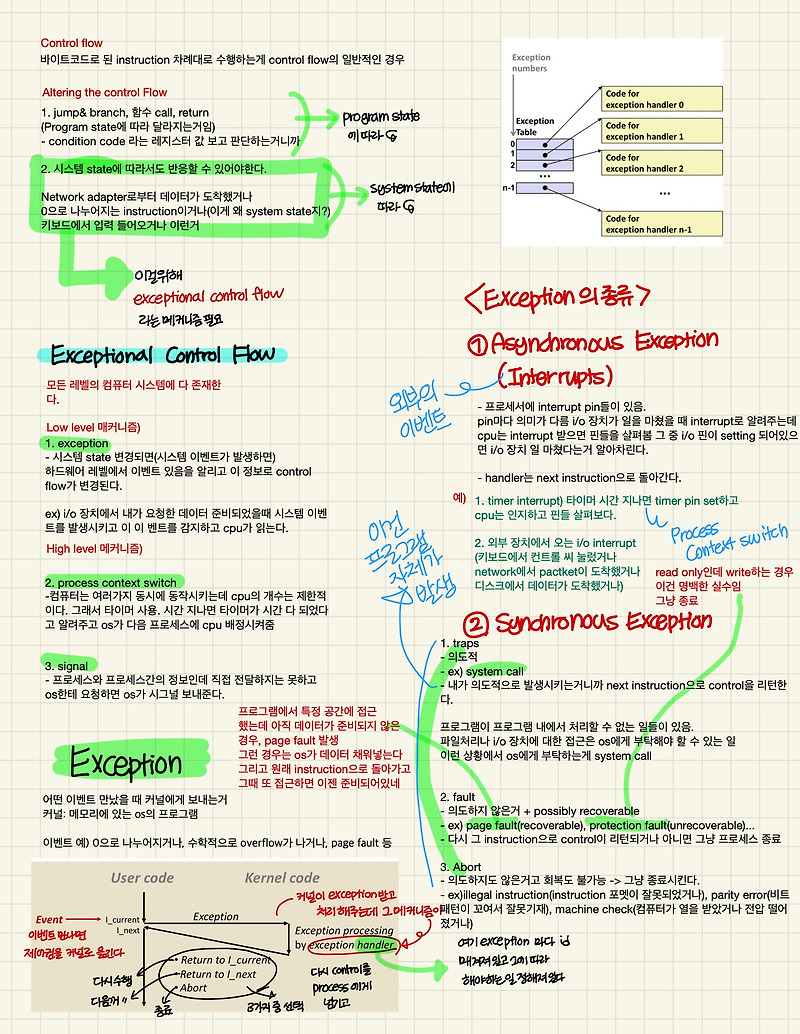 Control flow
바이트코드로 된 instruction 차례대로 수행하는게 control flow의 일반적인 경우
Altering the control Flow
1. jump& branch, 함수 call, return
(Program state에 따라 달라지는거임)
- condition code 라는 레지스터 값 보고 판단하는거니까
program state
에 따라
2. 시스템 state에 따라서도 반응할 수 있어야한다.
Network adapter로부터 데이터가 도착했거나
0으로 나누어지는 instruction이거나(이게 왜 system state지?)
키보드에서 입력 들어오거나 이런거
system state에
따라
이걸위해
exceptional control flow
라는 메커니즘 필요
Exception
numbers
Exception
Table
0
1
2
...
n-1
Code for
exception handler 0
Code for
exception handler 1
Code for
exception handler 2
...
Code for
exception handler n-1
Exceptional Control Flow
모든 레벨의 컴퓨터 시스템에 다 존재한
다.
Low level 매커니즘)
1. exception
- 시스템 state 변경되면(시스템 이벤트가 발생하면)
하드웨어 레벨에서 이벤트 있음을 알리고 이 정보로 control
flow가 변경된다.
ex) i/o 장치에서 내가 요청한 데이터 준비되었을때 시스템 이벤
트를 발생시키고 이 이 벤트를 감지하고 cpu가 읽는다.
High level 메커니즘)
2. process context switch
-컴퓨터는 여러가지 동시에 동작시키는데 cpu의 개수는 제한적
이다. 그래서 타이머 사용. 시간 지나면 타이머가 시간 다 되었다
고 알려주고 os가 다음 프로세스에 cpu 배정시켜줌
3. signal
- 프로세스와 프로세스간의 정보인데 직접 전달하지는 못하고
os한테 요청하면 os가 시그널 보내준다.
프로그램에서 특정 공간에 접근
했는데 아직 데이터가 준비되지 않은
경우, page fault 발생
그런 경우는 os가 데이터 채워넣는다
그리고 원래 instruction으로 돌아가고
그때 또 접근하면 이젠 준비되어있네
Exception
어떤 이벤트 만났을 때 커널에게 보내는거
커널: 메모리에 있는 os의 프로그램
이벤트 예) 0으로 나누어지거나, 수학적으로 overflow가 나거나, page fault 등
User code
Kernel code
Event
I_current
I_next
Exception
Exception processing
by exception handler
Return to I_current
Return to I_next
Abort
이벤트 만나면
제어권을 커널로 옮긴다
커널이 exception 받고
처리 해주는데 그 메커니즘이
다시수행
다음꺼 "
종료
3가지 중 선택
다시 control을
process에게
넘기고
<Exception의 종류>
① Asynchronous Exception
(Interrupts)
외부의
이벤트
- 프로세서에 interrupt pin들이 있음.
pin마다 의미가 다름 i/o 장치가 일을 마쳤을 때 interrupt로 알려주는데
cpu는 interrupt 받으면 핀들을 살펴봄 그 중 i/o 핀이 setting 되어있으
면 i/o 장치 일 마쳤다는거 알아차린다.
- handler는 next instruction으로 돌아간다.
예)
1. timer interrupt) 타이머 시간 지나면 timer pin set하고
cpu는 인지하고 핀들 살펴보다.
Process
Context switch
2. 외부 장치에서 오는 i/o interrupt
(키보드에서 컨트롤 씨 눌렀거나
network에서 pactket이 도착했거나
디스크에서 데이터가 도착했거나)
read only인데 write하는 경우
이건 명백한 실수임
그냥 종료
이건
프로그램
자체가
발생
② Synchronous Exception
1. traps
- 의도적
- ex) system call
- 내가 의도적으로 발생시키는거니까 next instruction으로 control을 리턴한
다.
프로그램이 프로그램 내에서 처리할 수 없는 일들이 있음.
파일처리나 i/o 장치에 대한 접근은 os에게 부탁해야 할 수 있는 일
이런 상황에서 os에게 부탁하는게 system call
2. fault
- 의도하지 않은거 + possibly recoverable
- ex) page fault(recoverable), protection fault(unrecoverable)...
- 다시 그 instruction으로 control이 리턴되거나 아니면 그냥 프로세스 종료
3. Abort
- 의도하지도 않은거고 회복도 불가능 -> 그냥 종료시킨다.
- ex)illegal instruction(instruction 포멧이 잘못되었거나), parity error(비트
패턴이 꼬여서 잘못기재), machine check(컴퓨터가 열을 받았거나 전압 떨어
졌거나)
여기 exception 마다 id
매겨져있고 그에 따라
해야하는 일 정해져있다